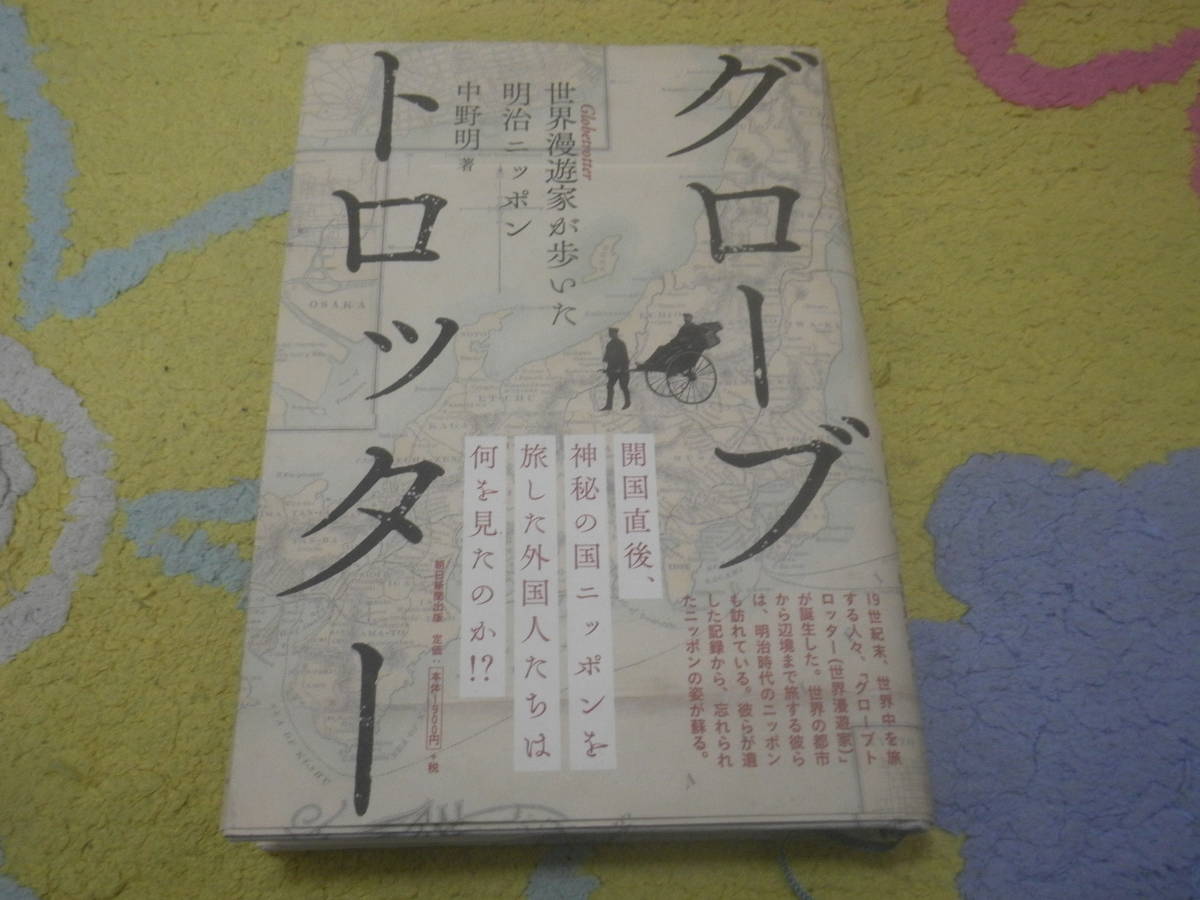 グローブ
トロッター
Globetrotter
世界漫遊家が歩いた
明治ニッポン
中野明 著
開国直後、
神秘の国ニッポンを
旅した外国人たちは
何を見たのか!?
19世紀末、世界中を旅
する人々、「グローブト
ロッター(世界漫遊家)」
が誕生した。世界の都市
から辺境まで旅する彼ら
は、明治時代のニッポン
も訪れている。彼らが遺
した記録から、忘れられ
たニッポンの姿が蘇る。
朝日新聞出版 定価:本体1900円+税
OSAKA
ETCHU